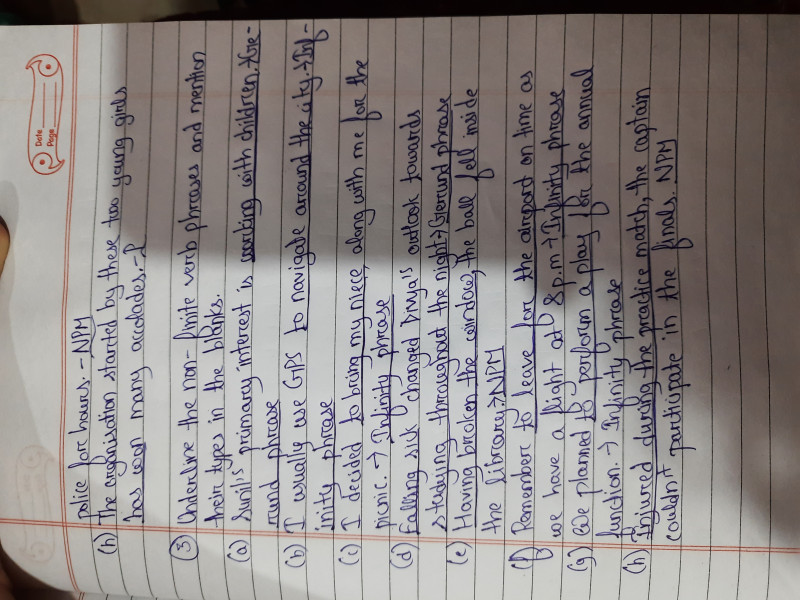 Date
Page
police for hours. - NPM
(h) The organisation started by these two young girls
has won many accolades. - P
(3) Underline the non-finite verb phrases and mention
their types in the blanks.
(a) Sunil's primary interest is working with children. → Ge-
rund phrase
(b) I usually use GPS to navigate around the city. → Inf-
inity phrase
(c) I decided to bring my niece, along with me for the
picnic. → Infinity phrase
(d) Falling sick changed Divya's outlook towards
studying throughout the night → Gerrund phrase
(e) Having broken the window, the ball fell inside
the library. → NPM
(f) Remember to leave for the airport on time as
we have a flight at 8 p.m → Infinity phrase
(g) We planned to perform a play for the annual
function. → Infinity phrase
(h) Injured during the practice match, the captain
couldn't participate in the finals. NPM